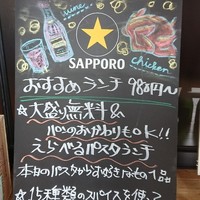 wine
SAPPORO
chicken
おすすめランチ 980円!
☆大盛無料&
パンのおかわりもOK!!
えらべるパスタランチ
本日のパスタからお好きなもの1品
☆15種類のスパイスを使って